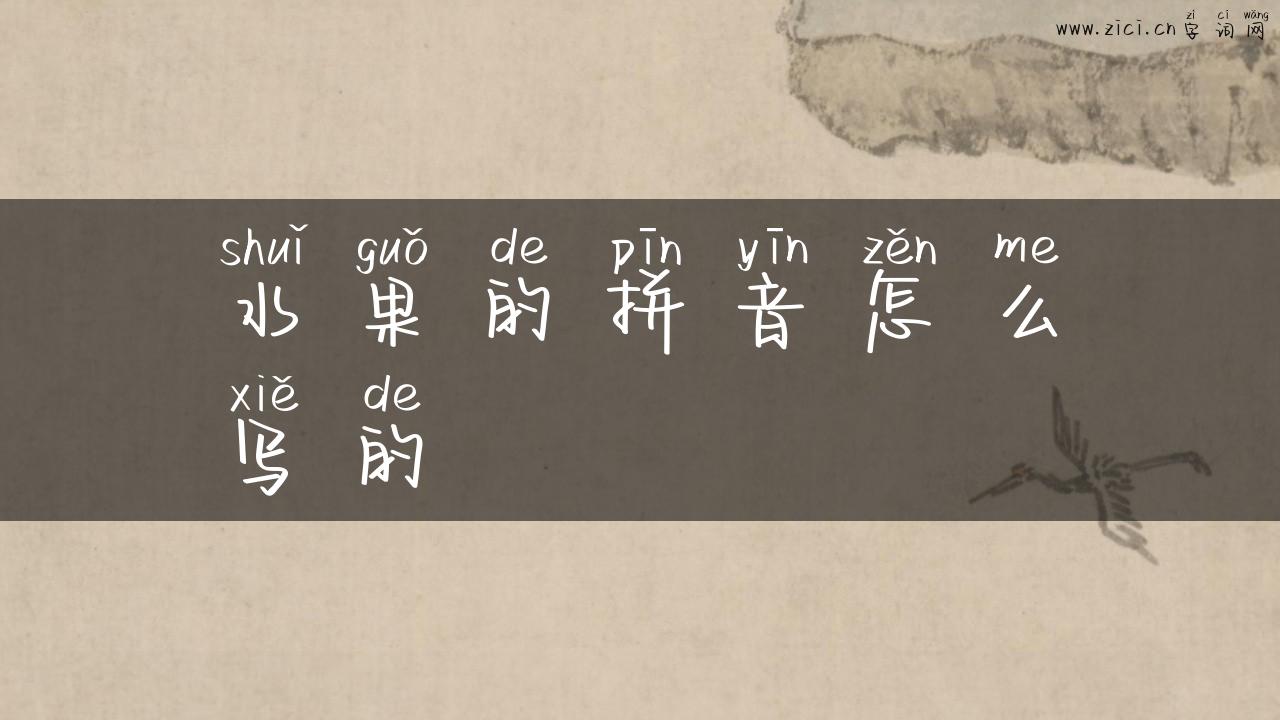 zì cí wǎng
www.zici.cn 字词网
shuǐ guǒ de pīn yīn zěn me
水果的拼音怎么
xiě de
写的